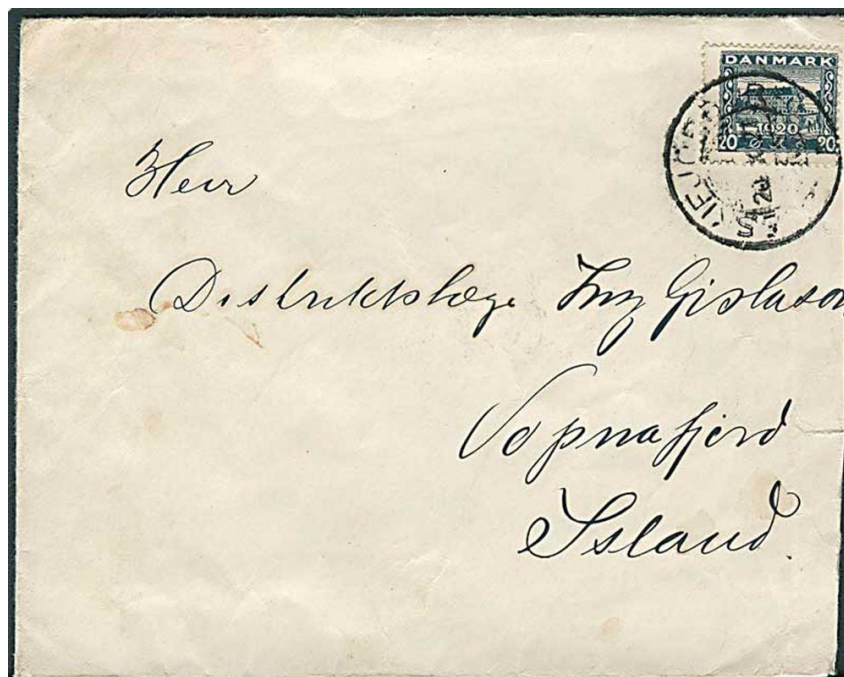 DANMARK
1920
20 20
Herr
Distriktslæge Ing Gislason
Vopnafjord
Island